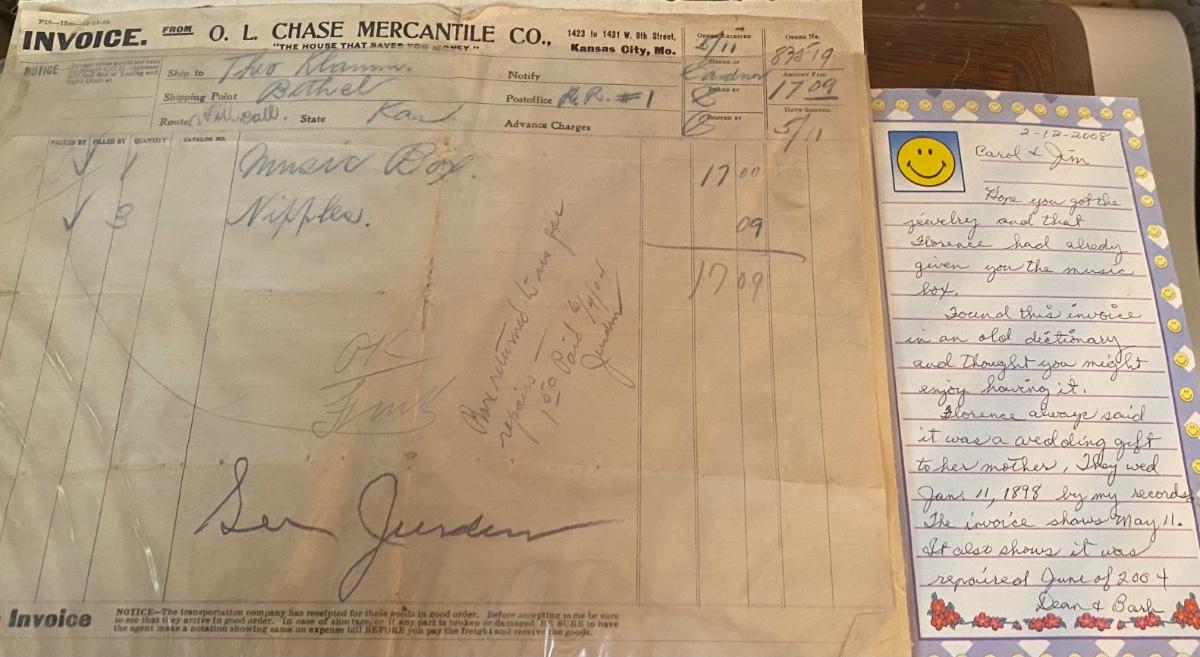 INVOICE.
FROM O. L. CHASE MERCANTILE CO.,
"THE HOUSE THAT SAVES YOU MONEY."
1423 to 1431 W. 9th Street,
Kansas City, Mo.
ORDER RECEIVED
5/11
ORDER No.
83519
NOTICE
Ship to Theo Klamm.
Notify
ORDER OF
Gardner
AMOUNT PAID
17 09
Shipping Point Bethel
Postoffice R.R. #1
FILLED BY
Route Will Call. State Kan
Advance Charges
DATE SHIPPED
5/11
PACKED BY FILLED BY QUANTITY CATALOG NO.
✓ 1 Music Box. 17 00
✓ 3 Nipples. 09
17 09
Box returned to us for
repairs
1 50 Paid 6/14/04
Jurden
OK
Geo Jurden
Invoice
NOTICE—The transportation company has receipted for these goods in good order. Before accepting same be sure
to see that they arrive in good order. In case of shortage, or if any part is broken or damaged, BE SURE to have
the agent make a notation showing same on expense bill BEFORE you pay the freight and receive the goods.
2-12-2008
Carol & Jim
Hope you got the
jewelry and that
Florence had alredy
given you the music
box.
Found this invoice
in an old dictionary
and thought you might
enjoy having it.
Florence always said
it was a wedding gift
to her mother. They wed
Jan. 11, 1898 by my records
The invoice shows May 11.
It also shows it was
repaired June of 2004
Dean & Barb